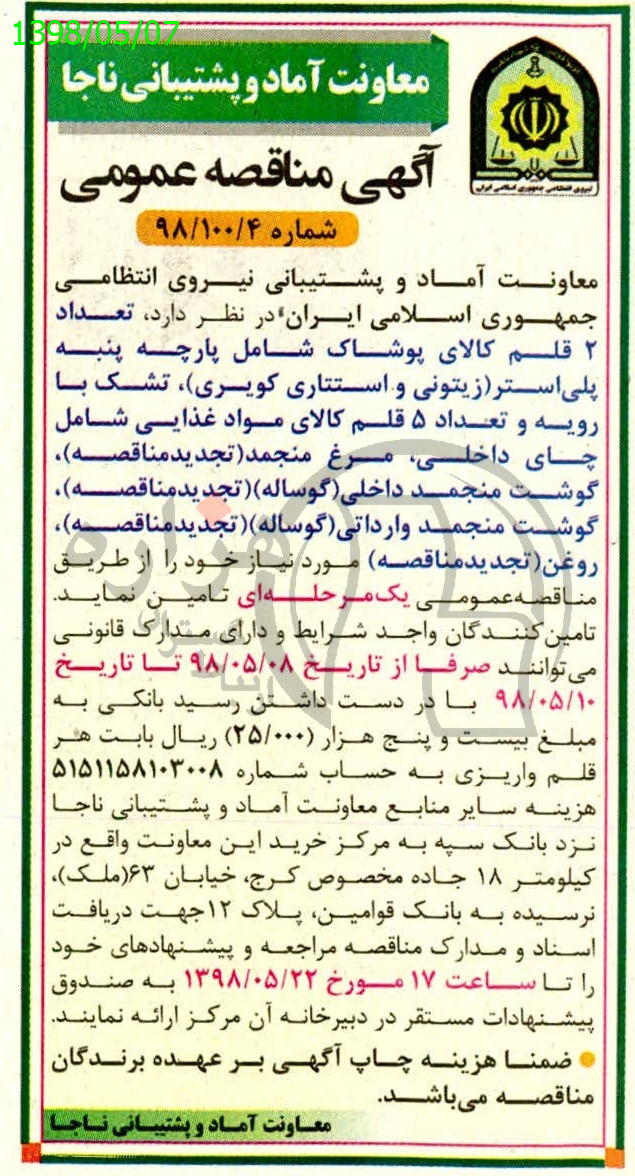 1398/05/07
معاونت آماد و پشتیبانی ناجا
نیروی انتظامی جمهوری اسلامی ایران
آگهی مناقصه عمومی
شماره ۹۸/۱۰۰/۴
معاونت آماد و پشتیبانی نیروی انتظامی
جمهوری اسلامی ایران در نظر دارد، تعداد
۲ قلم کالای پوشاک شامل پارچه پنبه
پلی‌استر(زیتونی و استتاری کویری)، تشک با
رویه و تعداد ۵ قلم کالای مواد غذایی شامل
چای داخلی، مرغ منجمد(تجدیدمناقصه)،
گوشت منجمد داخلی(گوساله)(تجدیدمناقصه)،
گوشت منجمد وارداتی(گوساله)(تجدیدمناقصه)،
روغن(تجدیدمناقصه) مورد نیاز خود را از طریق
مناقصه‌عمومی یک‌مرحله‌ای تامین نماید.
تامین‌کنندگان واجد شرایط و دارای مدارک قانونی
می‌توانند صرفا از تاریخ ۹۸/۰۵/۰۸ تا تاریخ
۹۸/۰۵/۱۰ با در دست داشتن رسید بانکی به
مبلغ بیست و پنج هزار (۲۵/۰۰۰) ریال بابت هر
قلم واریزی به حساب شماره ۵۱۵۱۱۵۸۱۰۳۰۰۸
هزینه سایر منابع معاونت آماد و پشتیبانی ناجا
نزد بانک سپه به مرکز خرید این معاونت واقع در
کیلومتر ۱۸ جاده مخصوص کرج، خیابان ۶۳(ملک)،
نرسیده به بانک قوامین، پلاک ۱۲جهت دریافت
اسناد و مدارک مناقصه مراجعه و پیشنهادهای خود
را تا ساعت ۱۷ مورخ ۱۳۹۸/۰۵/۲۲ به صندوق
پیشنهادات مستقر در دبیرخانه آن مرکز ارائه نمایند.
ضمنا هزینه چاپ آگهی بر عهده برندگان
مناقصه می‌باشد.
معاونت آماد و پشتیبانی ناجا
هزاره